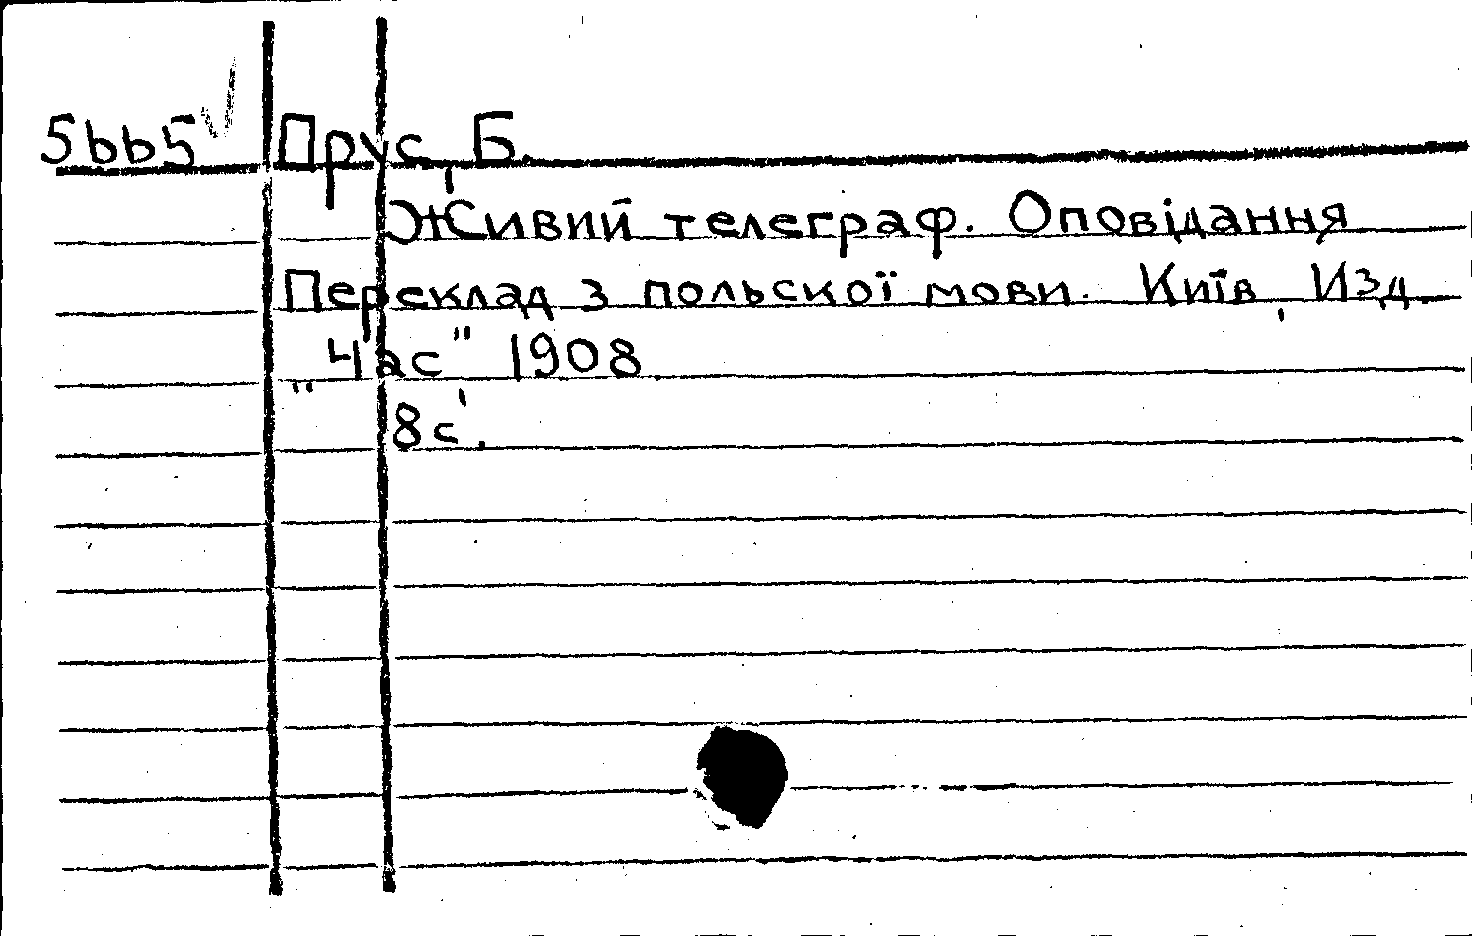 5665 Прус, Б.
Живий телеграф. Оповідання
Переклад з польскої мови. Київ, Изд.
„Час" 1908.
8с.